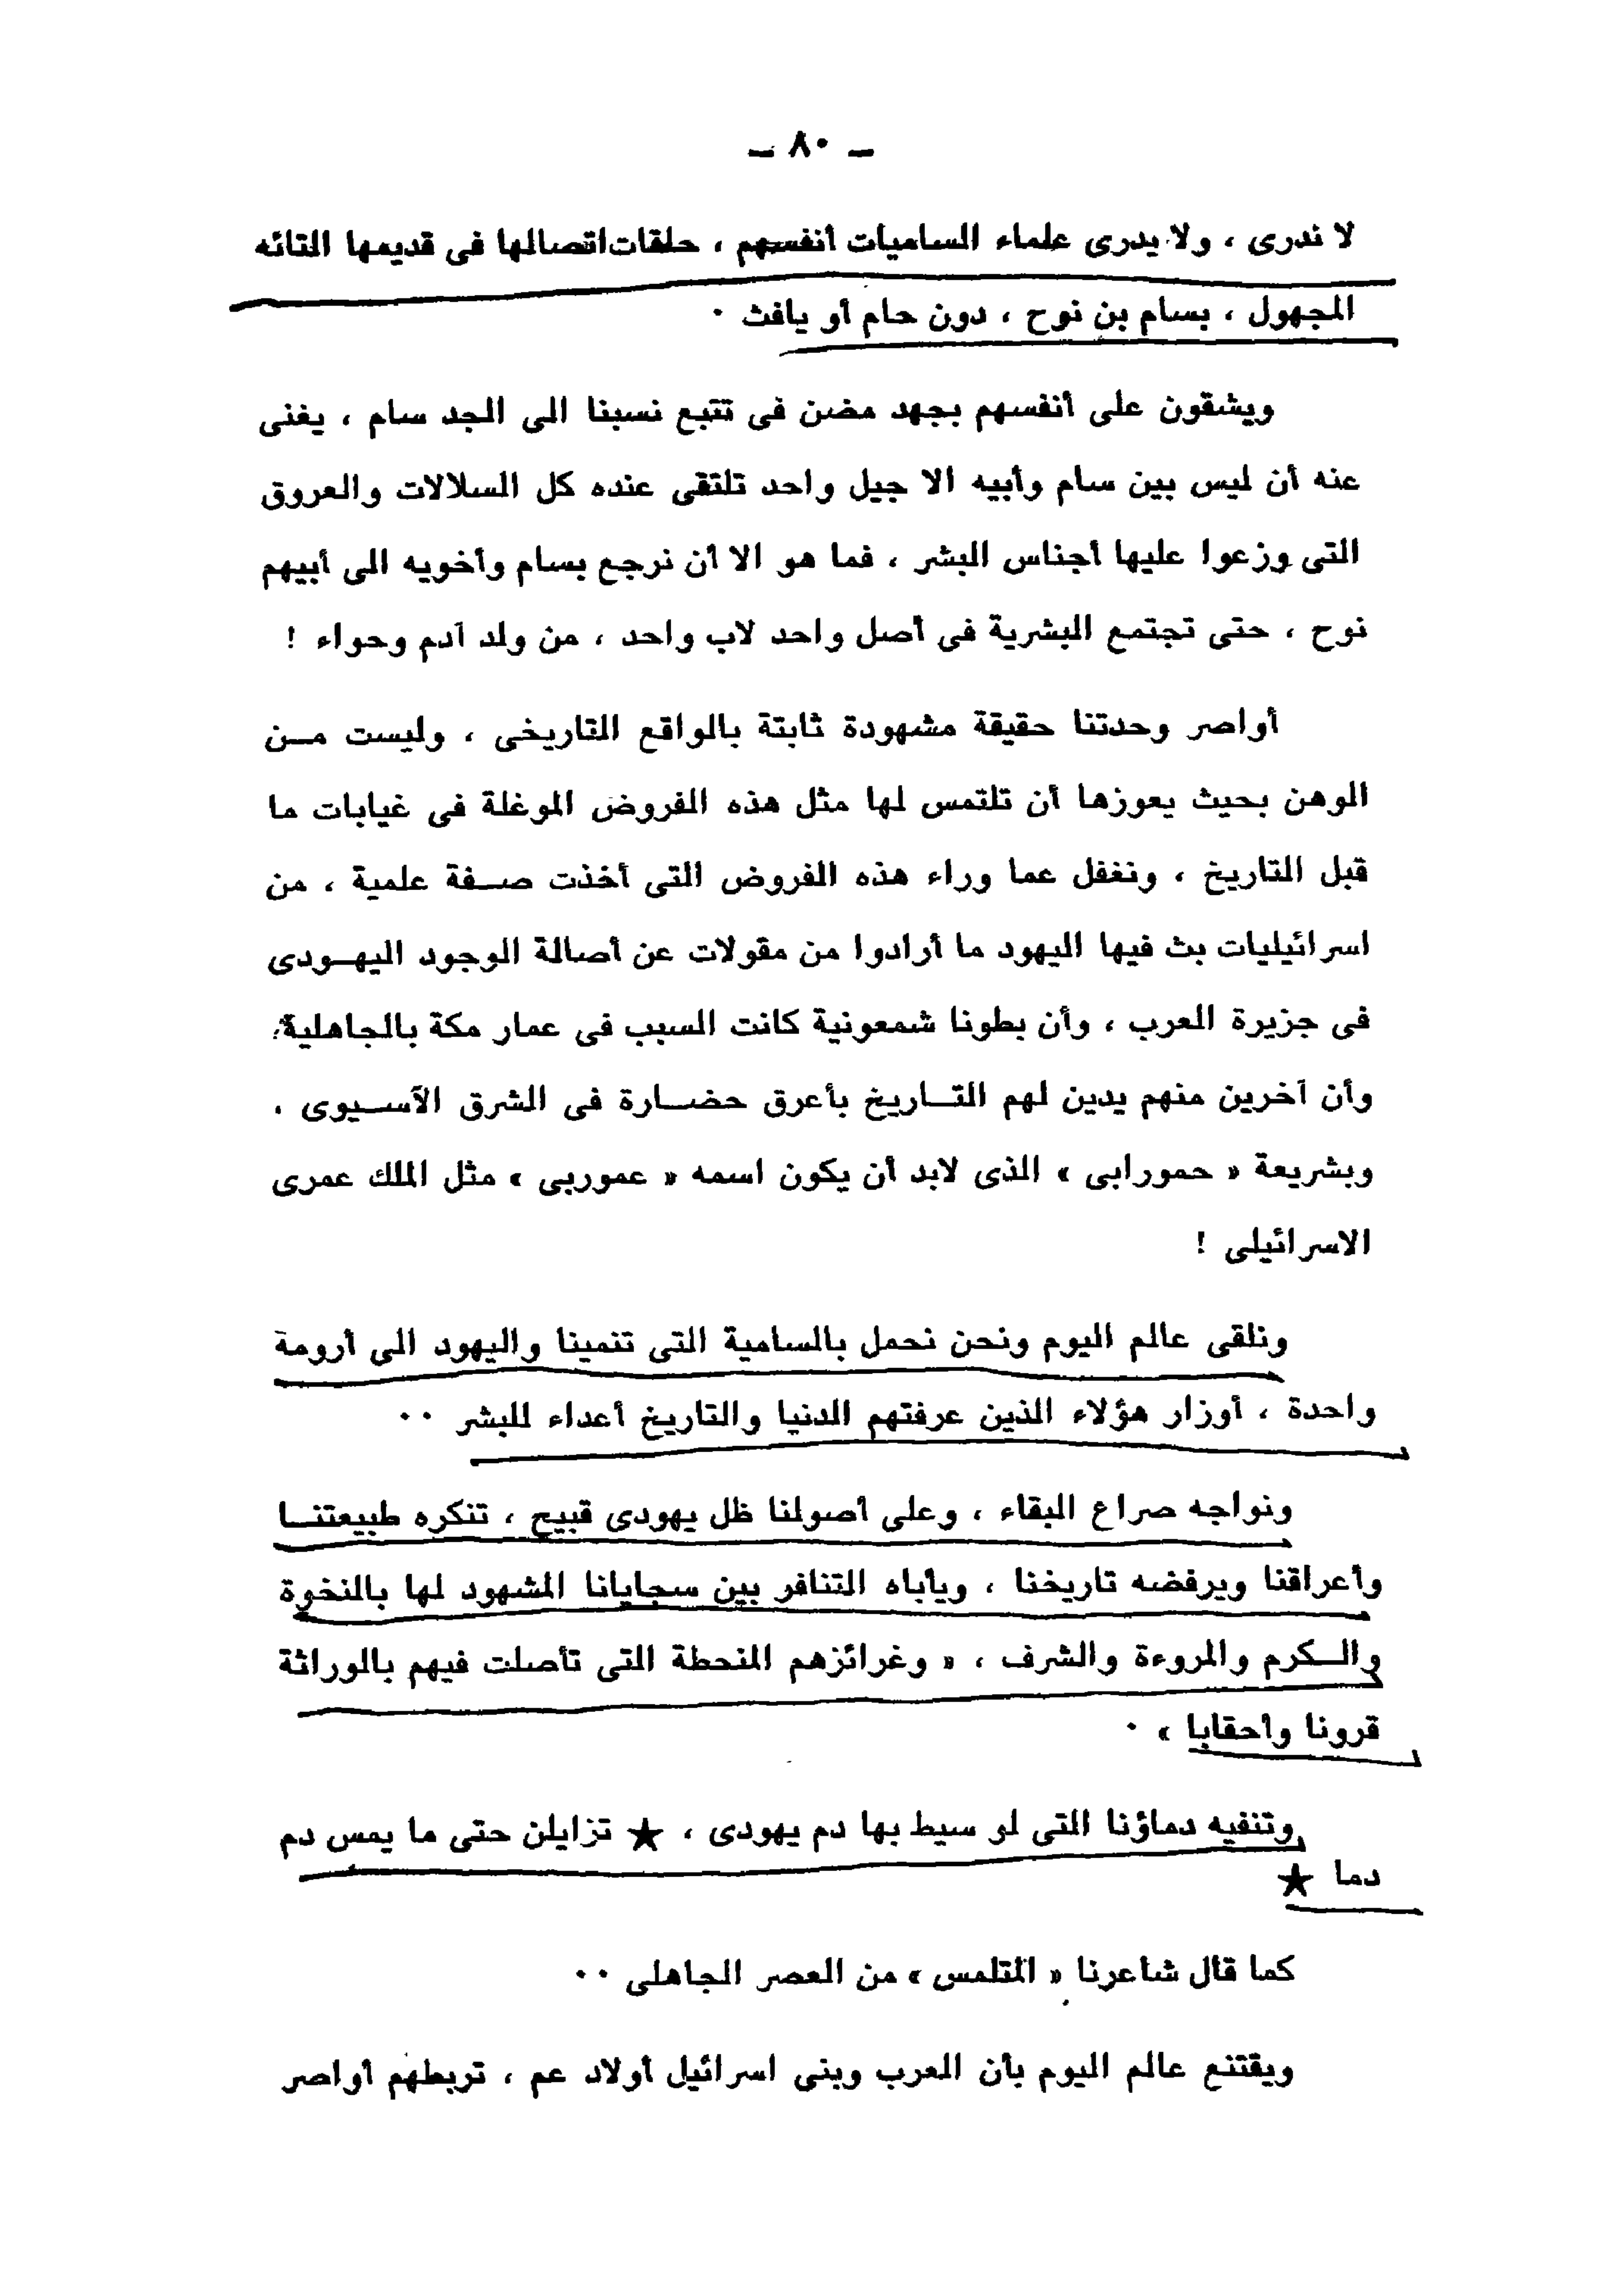 ــ ٨٠ ــ
لا ندرى ، ولا يدرى علماء الساميات أنفسهم ، حلقات اتصالها فى قديمها التائه
المجهول ، بسام بن نوح ، دون حام أو يافث ٠
ويشقون على أنفسهم بجهد مضن فى تتبع نسبنا الى الجد سام ، يغنى
عنه أن ليس بين سام وأبيه الا جيل واحد تلتقى عنده كل السلالات والعروق
التى وزعوا عليها أجناس البشر ، فما هو الا أن نرجع بسام وأخويه الى أبيهم
نوح ، حتى تجتمع البشرية فى أصل واحد لاب واحد ، من ولد آدم وحواء !
أواصر وحدتنا حقيقة مشهودة ثابتة بالواقع التاريخى ، وليست مــن
الوهن بحيث يعوزها أن تلتمس لها مثل هذه الفروض الموغلة فى غيابات ما
قبل التاريخ ، ونغفل عما وراء هذه الفروض التى أخذت صــفة علمية ، من
اسرائيليات بث فيها اليهود ما أرادوا من مقولات عن أصالة الوجود اليهــودى
فى جزيرة العرب ، وأن بطونا شمعونية كانت السبب فى عمار مكة بالجاهلية،
وأن آخرين منهم يدين لهم التــاريخ بأعرق حضــارة فى الشرق الآســيوى ،
وبشريعة « حمورابى » الذى لابد أن يكون اسمه « عموربى » مثل الملك عمرى
الاسرائيلى !
ونلقى عالم اليوم ونحن نحمل بالسامية التى تنمينا واليهود الى أرومة
واحدة ، أوزار هؤلاء الذين عرفتهم الدنيا والتاريخ أعداء للبشر ٠٠
ونواجه صراع البقاء ، وعلى أصولنا ظل يهودى قبيح ، تنكره طبيعتنــا
وأعراقنا ويرفضه تاريخنا ، ويأباه التنافر بين سجايانا المشهود لها بالنخوة
والــكرم والمروءة والشرف ، « وغرائزهم المنحطة التى تأصلت فيهم بالوراثة
قرونا وأحقابا » ٠
وتنفيه دماؤنا التى لو سيط بها دم يهودى ، ★ تزايلن حتى ما يمس دم
دما ★
كما قال شاعرنا « المتلمس » من العصر الجاهلى ٠٠
ويقتنع عالم اليوم بأن العرب وبنى اسرائيل أولاد عم ، تربطهم أواصر